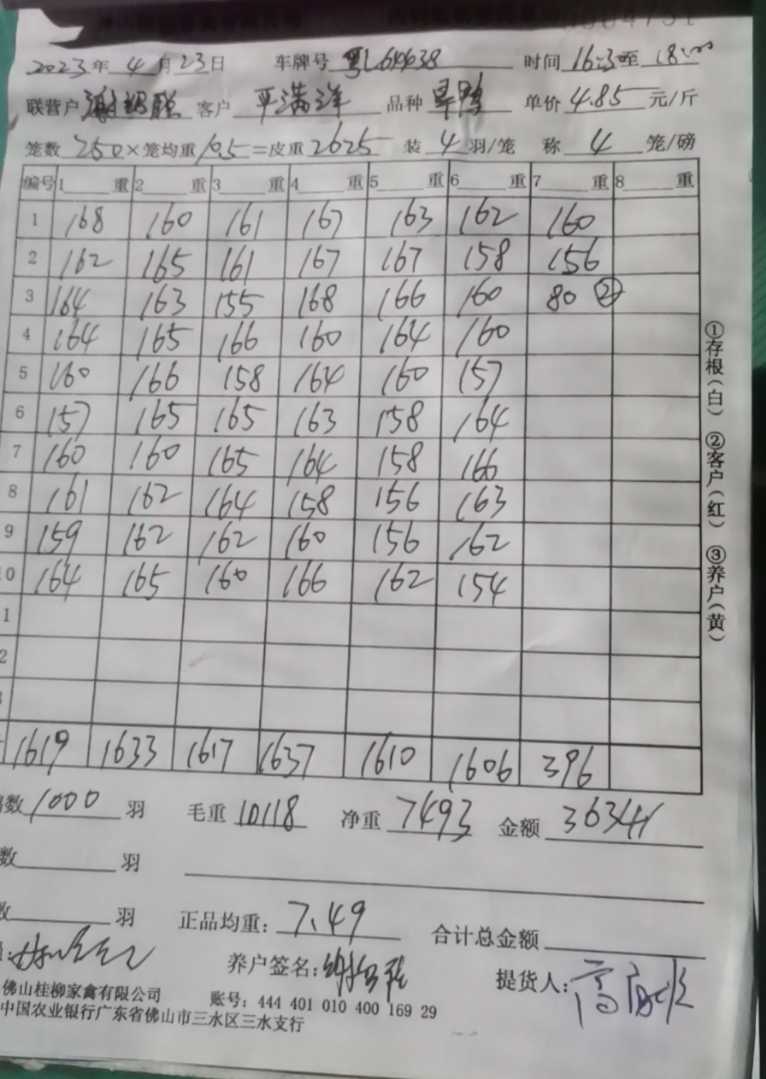 2023年 4月23日 车牌号 时间 至
联营户 客户 平满洋 品种 旱鸭 单价 4.85 元/斤
笼数 250 ×笼均重 10.5 =皮重 2625 装 4 羽/笼 称 4 笼/磅
编号 1 重 2 重 3 重 4 重 5 重 6 重 7 重 8 重
1 168 160 161 167 163 162 160
2 162 165 161 167 167 158 156
3 164 163 155 168 166 160 80 ②
4 164 165 166 160 164 160
5 160 166 158 164 160 157
6 157 165 165 163 158 164
7 160 160 165 164 158 166
8 161 162 164 158 156 163
9 159 162 162 160 156 162
0 164 165 160 166 162 154
1
2
1619 1633 1617 1637 1610 1606 396
数 1000 羽 毛重 10118 净重 7493 金额 36341
数 羽
羽 正品均重: 7.49 合计总金额
养户签名: 提货人:
佛山桂柳家禽有限公司 账号: 444 401 010 400 169 29
中国农业银行广东省佛山市三水区三水支行
①存根(白) ②客户(红) ③养户(黄)